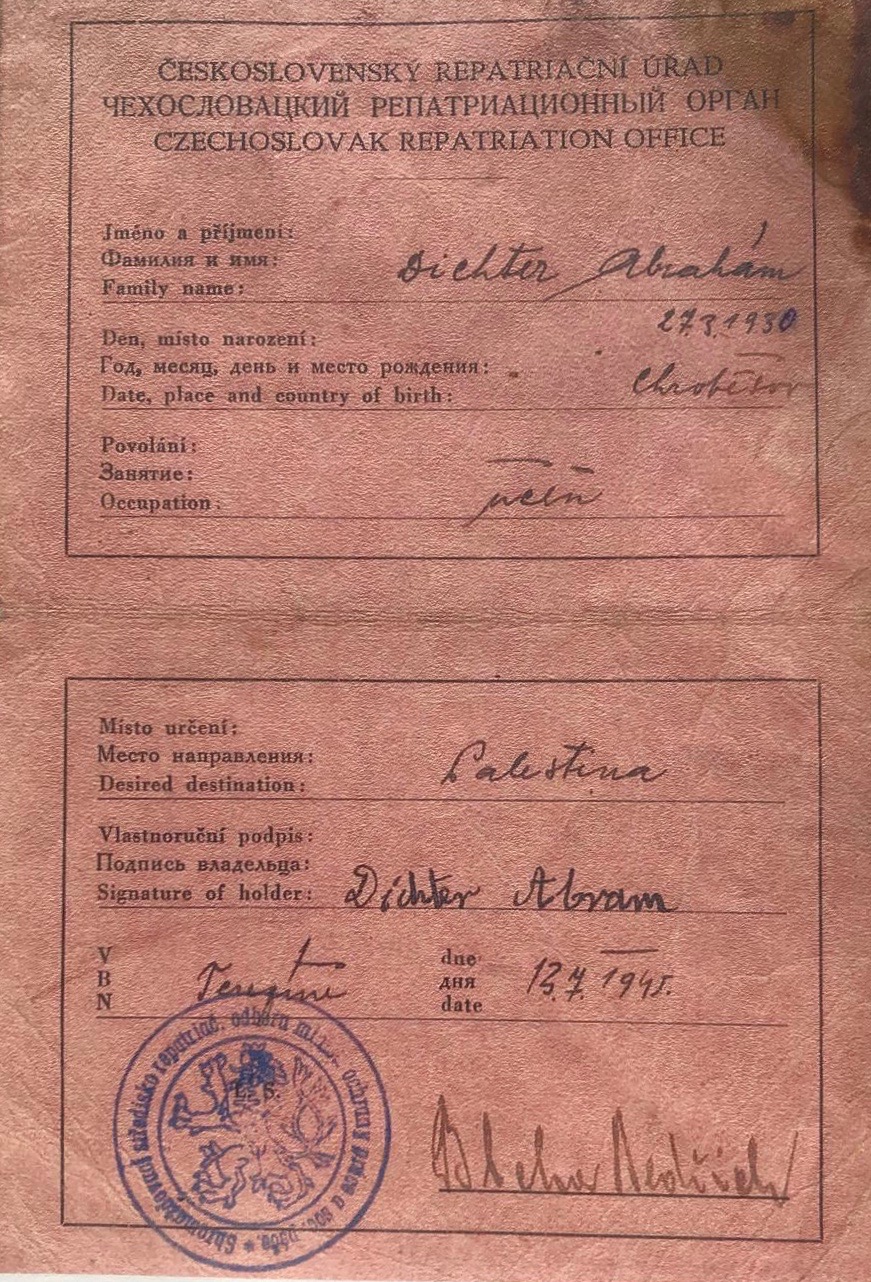 ČESKOSLOVENSKÝ REPATRIAČNÍ ÚŘAD
ЧЕХОСЛОВАЦКИЙ РЕПАТРИАЦИОННЫЙ ОРГАН
CZECHOSLOVAK REPATRIATION OFFICE
Jméno a příjmení:
Фамилия и имя:
Family name: Dichter Abrahám
27.3.1930
Den, místo narození:
Год, месяц, день и место рождения:
Date, place and country of birth:
Povolání:
Занятие:
Occupation: učeň
Místo určení:
Место направления:
Desired destination: Palestina
Vlastnoruční podpis:
Подпись владельца:
Signature of holder: Dichter Abram
V
В
N Terezíně
dne
дня
date 13.7.1945.
L. S.
Shromažďovací středisko repatriač. odboru minist. ochrany práce a soc. péče *